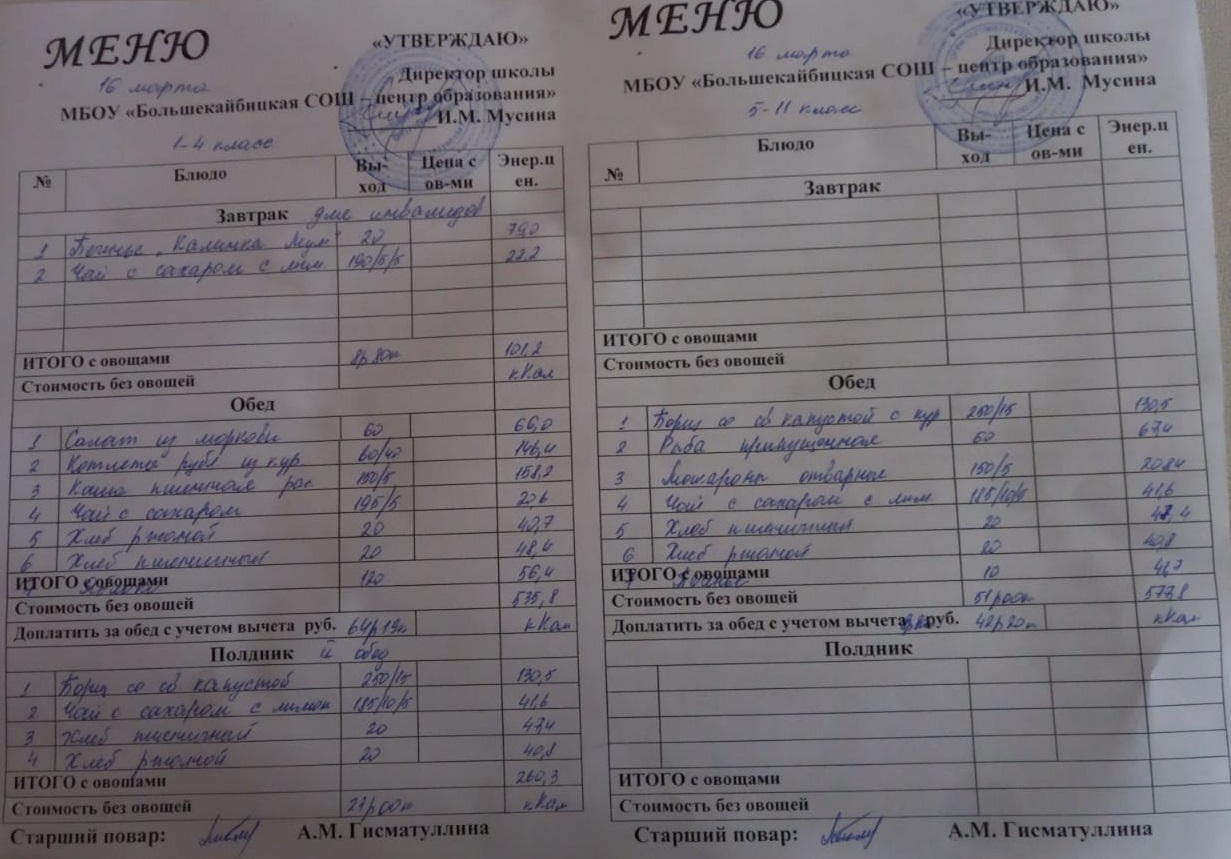 МЕНЮ
«УТВЕРЖДАЮ»
16 марта
Директор школы
МБОУ «Большекайбицкая СОШ – центр образования»
И.М. Мусина
1-4 класс
№ Блюдо Вы-ход Цена с ов-ми Энер.ц ен.
Завтрак для инвалидов
1 Печенье "Калинка 20 79,0
2 Чай с сахаром с лим 190/5/5 22,2
ИТОГО с овощами 8р80к 101,2
Стоимость без овощей кКал
Обед
1 Салат из моркови 60 66,0
2 Котлета руб из кур 60/40 146,4
3 Каша пшеничная рас 150/5 158,2
4 Чай с сахаром 195/5 20,6
5 Хлеб ржаной 20 40,7
6 Хлеб пшеничный 20 48,4
ИТОГО с овощами 120 56,4
Стоимость без овощей 535,8
Доплатить за обед с учетом вычета руб. 64р19к кКал
Полдник обед
1 Борщ со св капустой 250/15 130,5
2 Чай с сахаром с лимон 185/10/5 41,6
3 Хлеб пшеничный 20 47,4
4 Хлеб ржаной 20 40,8
ИТОГО с овощами 260,3
Стоимость без овощей 21р00к кКал
Старший повар: А.М. Гисматуллина
МЕНЮ
«УТВЕРЖДАЮ»
16 марта
Директор школы
МБОУ «Большекайбицкая СОШ – центр образования»
И.М. Мусина
5-11 класс
№ Блюдо Вы-ход Цена с ов-ми Энер.ц ен.
Завтрак
ИТОГО с овощами
Стоимость без овощей
Обед
1 Борщ со св капустой с кур 250/15 130,5
2 Рыба припущенная 60 67,4
3 Макароны отварные 150/5 208,4
4 Чай с сахаром с лим 185/10/5 41,6
5 Хлеб пшеничный 20 47,4
6 Хлеб ржаной 20 40,8
ИТОГО с овощами 10 41,7
Стоимость без овощей 51р00к 577,8
Доплатить за обед с учетом вычета руб. 42р20к кКал
Полдник
ИТОГО с овощами
Стоимость без овощей
Старший повар: А.М. Гисматуллина